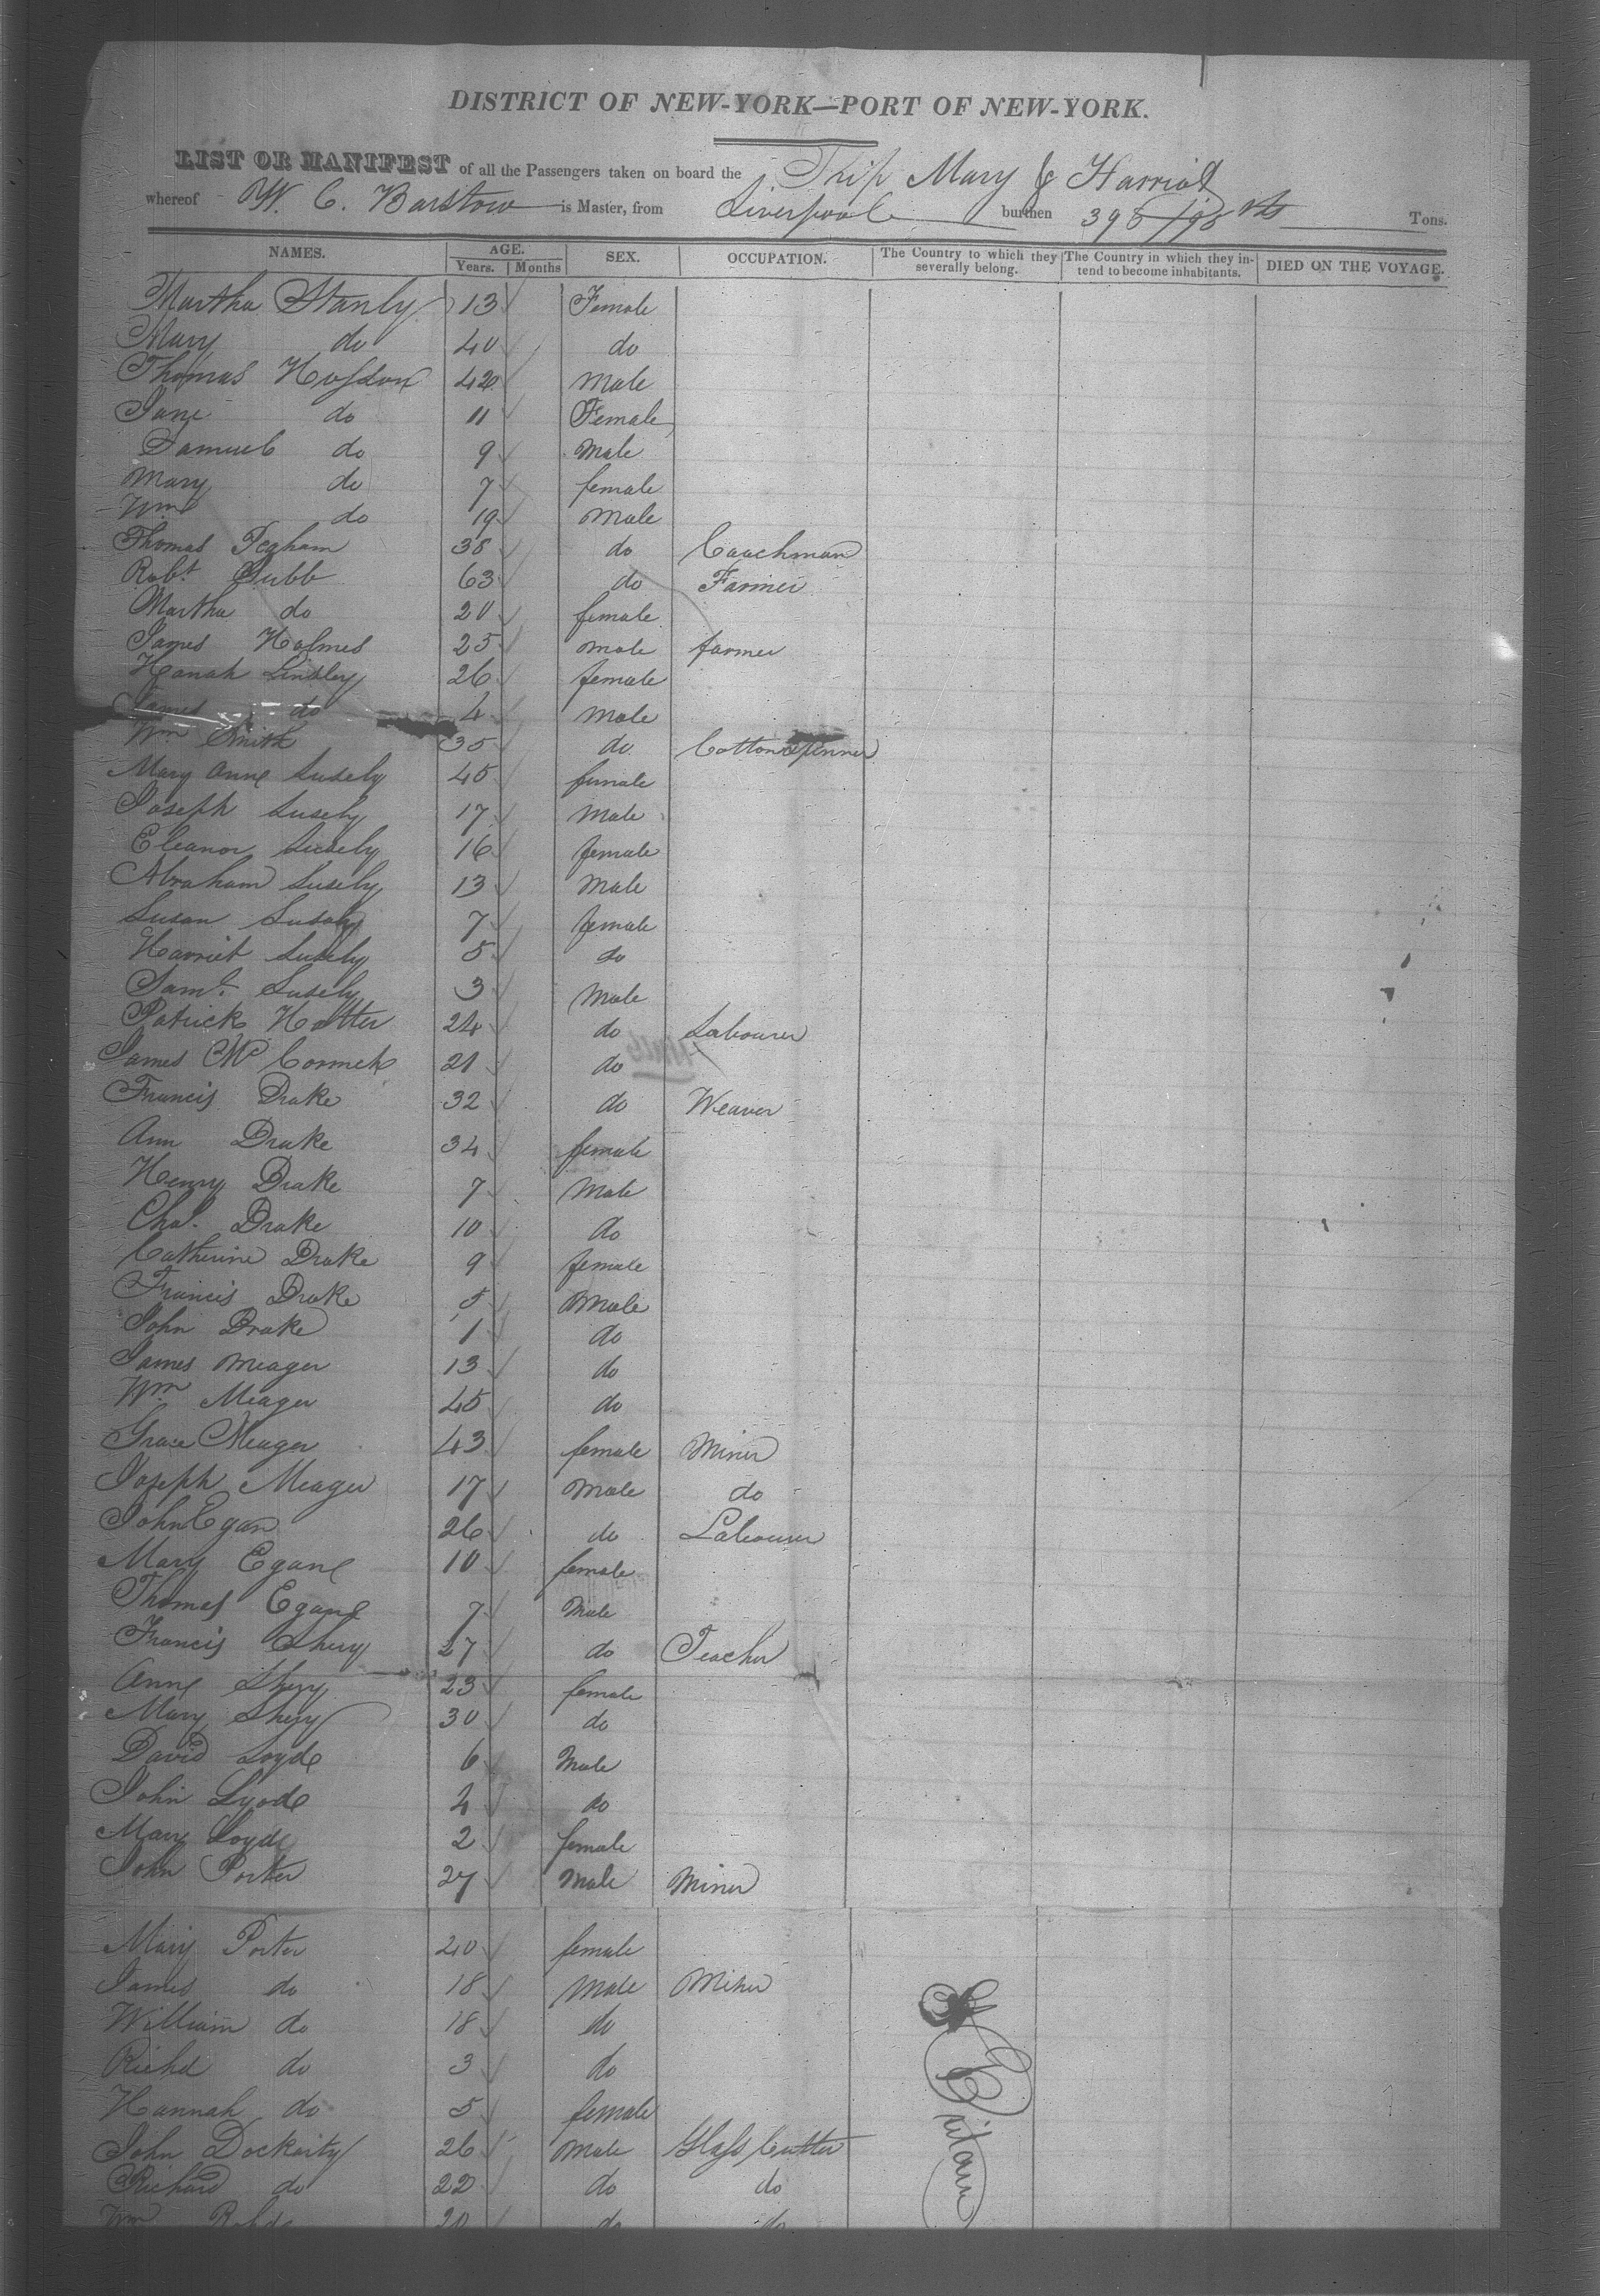 DISTRICT OF NEW-YORK—PORT OF NEW-YORK.
LIST OR MANIFEST of all the Passengers taken on board the Ship Mary & Harriot
whereof W. C. Barstow is Master, from Liverpool burthen 398 Tons.
NAMES. AGE. Years. Months SEX. OCCUPATION. The Country to which they severally belong. The Country in which they intend to become inhabitants. DIED ON THE VOYAGE.
Martha Stanly 13 Female
Mary do 40 do
Thomas 42 Male
Jane do 11 Female
Samuel do 9 Male
Mary do 7 female
Wm do 19 Male
Thomas Pegham 38 do Coachman
Robt 63 do Farmer
Martha do 20 female
James Holmes 25 male farmer
Hanah Linsley 26 female
James do 4 male
Wm Smith 35 do Cotton spinner
Mary Anne Susely 45 female
Joseph Susely 17 Male
Eleanor Susely 16 female
Abraham Susely 13 Male
Susan Susely 7 female
Harriet Susely 5 do
Saml. Susely 3 Male
Patrick Hatter 24 do Labourer
James Mc Cormck 21 do
Francis Drake 32 do Weaver
Ann Drake 34 female
Henry Drake 7 Male
Chas. Drake 10 do
Catherine Drake 9 female
Francis Drake 5 Male
John Drake 1 do
James Meager 13 do
Wm Meager 45 do
Grace Meager 43 female Miner
Joseph Meager 17 Male do
John Egan 26 do Labourer
Mary Egane 10 female
Thomas Egane 7 Male
Francis Shery 27 do Teacher
Anne Shery 23 female
Mary Shery 30 do
David Loyde 6 Male
John Lyode 4 do
Mary Loyde 2 female
John Porter 27 Male Miner
Mary Porter 20 female
James do 18 Male Miner
William do 18 do
Richd do 3 do
Hannah do 5 female
John Dockerity 26 Male Glass Cutter
Richard do 22 do do
Wm 20 do do